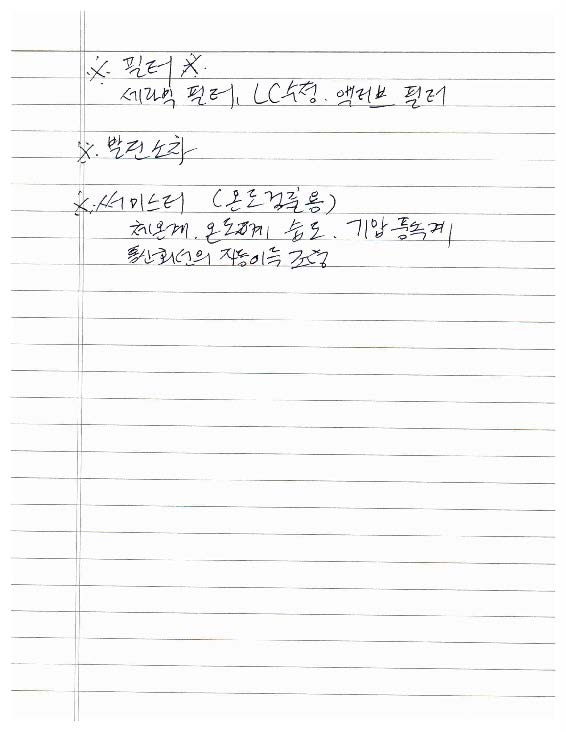 ※. 필터 ※.
세라믹 필터, LC수정. 액티브 필터
※. 발진소자
※. 써미스터 (온도검출용)
체온계. 온도계 습도. 기압풍속계
통신회선의 자동이득 조정